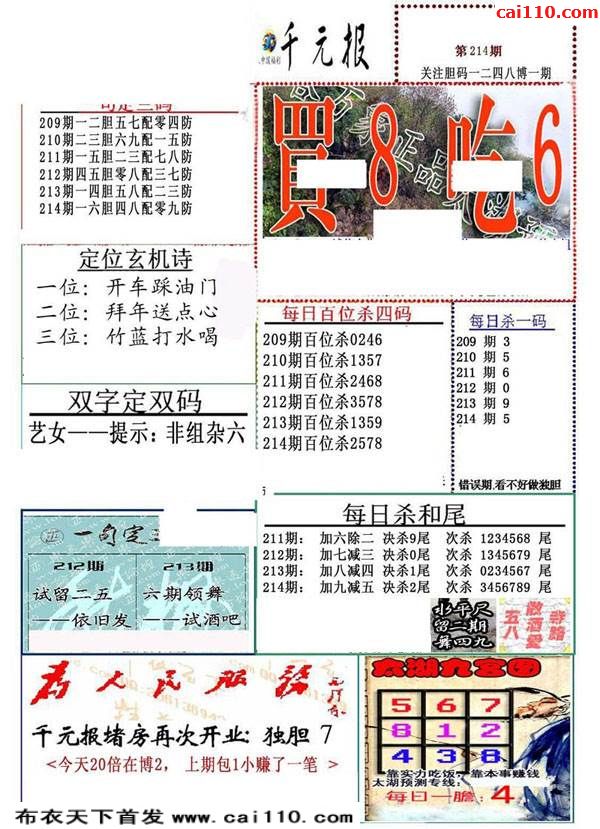 cai110.com
千元报
第214期
关注胆码一二四八博一期
209期一二胆五七配零四防
210期二三胆六九配一五防
211期一五胆二三配七八防
212期四五胆零八配三七防
213期一四胆五八配二三防
214期一六胆四八配零九防
買8吃6
定位玄机诗
一位：开车踩油门
二位：拜年送点心
三位：竹蓝打水喝
每日百位杀四码
209期百位杀0246
210期百位杀1357
211期百位杀2468
212期百位杀3578
213期百位杀1359
214期百位杀2578
每日杀一码
209 期 3
210 期 5
211 期 6
212 期 0
213 期 9
214 期 5
错误期,看不好做独胆
双字定双码
艺女——提示：非组杂六
每日杀和尾
211期： 加六除二 决杀9尾 次杀 1234568 尾
212期： 加七减三 决杀0尾 次杀 1345679 尾
213期： 加八减四 决杀1尾 次杀 0234567 尾
214期： 加九减五 决杀2尾 次杀 3456789 尾
一句定三
212期
试留二五
——依旧发
213期
六期领舞
——试酒吧
水平尺
留二期
舞四九
五八
為人民服務
千元报堵房再次开业: 独胆 7
<今天20倍在博2， 上期包1小赚了一笔 >
太湖九宫图
5 6 7
8 1 2
4 3 8
靠实力吃饭，靠本事赚钱
太湖预测专线:
每日一胆: 4
布衣天下首发 www.cai110.com